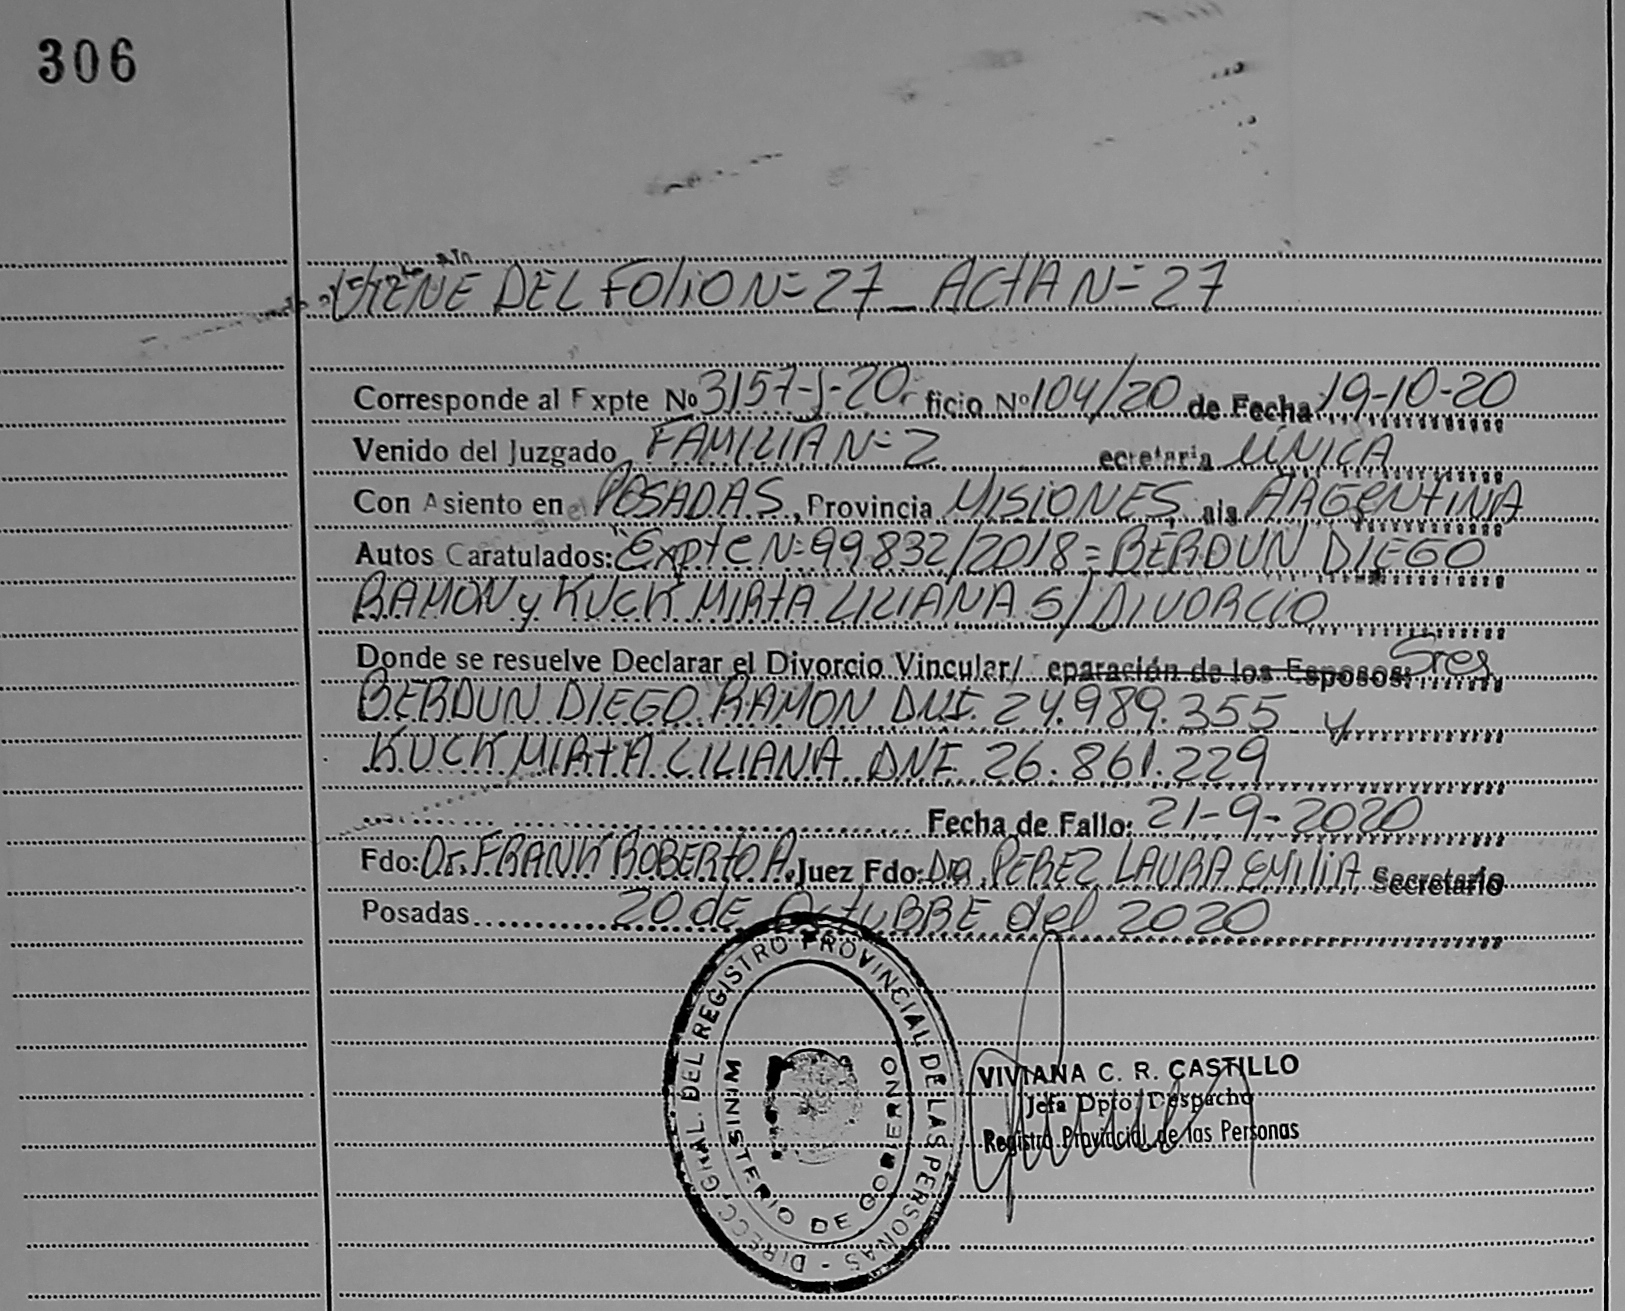 306
VIENE DEL FOLIO N= 27 _ ACTA N= 27
Corresponde al Expte No 3157-J-20 ficio Nº 104/20 de Fecha 19-10-20
Venido del Juzgado FAMILIA N= 2 ecretaria UNICA
Con Asiento en el POSADAS, Provincia MISIONES ais ARGENTINA
Autos Caratulados: "Expte N= 99832/2018 = BERDUN DIEGO
RAMON y KUCK MIRTA LILIANA S/ DIVORCIO
Donde se resuelve Declarar el Divorcio Vincular/ eparación de los Esposos: Sres
BERDUN DIEGO RAMON DNI. 24.989.355 y
KUCK MIRTA LILIANA DNI 26.861.229
Fecha de Fallo: 21-9-2020
Fdo: Dr. FRANK ROBERTO A. Juez Fdo: Dra. PEREZ LAURA EMILIA Secretario
Posadas 20 dE OctUBRE del 2020
DIRECC. GRAL. DEL REGISTRO PROVINCIAL DE LAS PERSONAS -
MINISTERIO DE GOBIERNO
VIVIANA C. R. CASTILLO
Jefa Dpto. Despacho
Registro Provincial de las Personas